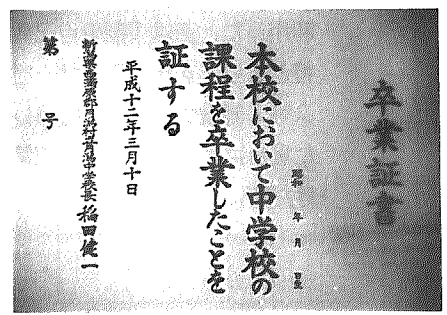 卒業証書
昭和 年 月 日生
本校において中学校の
課程を卒業したことを
証する
平成十二年三月十日
新潟県西蒲原郡月潟村立月潟中学校長 稲田健一
第 号